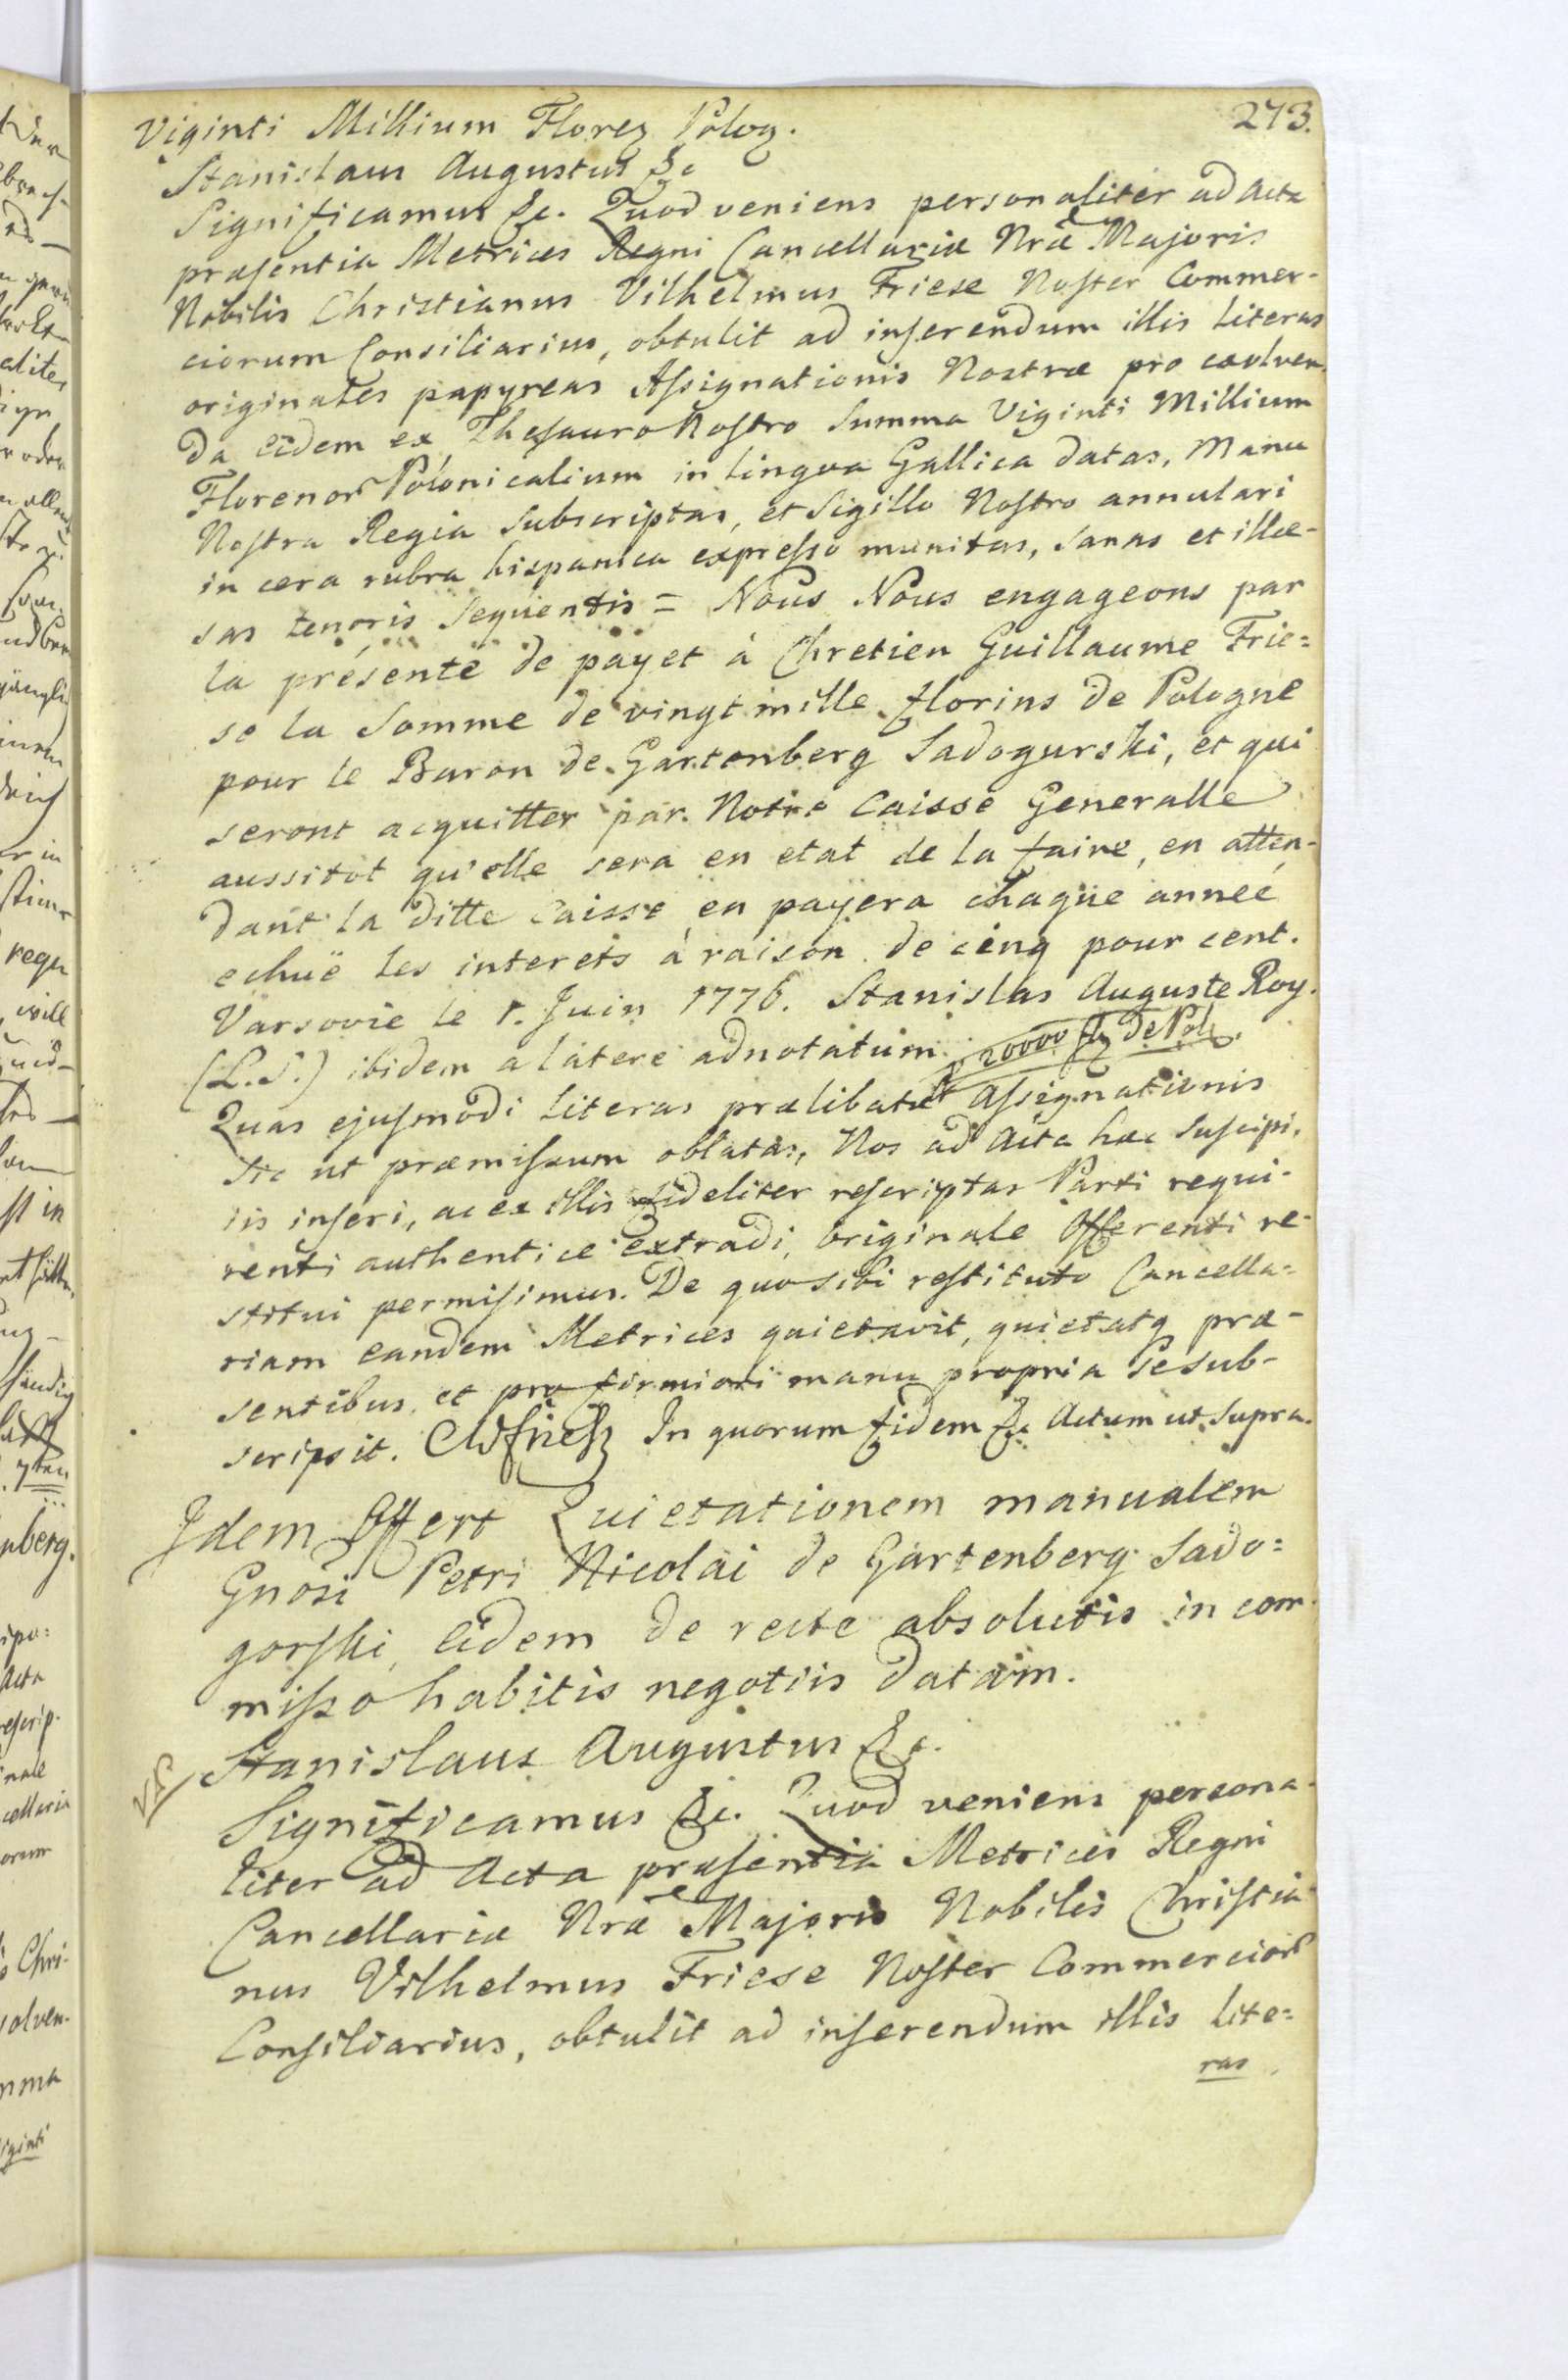 273.
Viginti Millium Floreŋ Poloŋ.
Stanislaus Augustus &c
Significamus &c. Quod veniens personaliter ad Acta
præsentia Metrices Regni Cancellariæ Nræ Majoris
Nobilis Christianus Vilhelmus Friese Noster Commer-
ciorum Consiliarius, obtulit ad inserendum illis Literas
originales papyreas Assignationis Nostræ pro exolven-
da eidem ex Thesauro Nostro Summa Viginti Millium
Florenor Polonicalium in Lingva Gallica datas, Manu
Nostra Regia subscriptas, et Sigillo Nostro annulari
in cera rubra hispanica expresso munitas, sanas et illæ-
sas tenoris sequentis = Nous Nous engageons par
la présente de payet à Chretien Guillaume Frie=
se la Somme de vingt mille florins de Pologne
pour le Baron de Gartenberg Sadogurski, et qui
seront acquitter par Notre Caisse Generalle
aussitot qu'elle sera en etat de la faire, en atten-
dant la ditte Caisse en payera chaque anneé
echuë les interets à raison de cinq pour cent.
Varsovie le 1. Juin 1776. Stanislas Auguste Roy.
(L.S.) ibidem a latere adnotatum 20000 fl de Pol.
Quas ejusmodi Literas prælibatæ Assignationis
sic ut præmissum oblatas, Nos ad Acta hæc suscipi,
iis inseri, ac ex illis fideliter rescriptas Parti requi-
renti authentice extradi, originale Offerenti re-
stitui permisimus. De quo sibi restituto Cancella=
riam eandem Metrices quietavit, quietatq præ-
sentibus, et pro firmiori manu propria se sub-
scripsit. CWfriesz In quorum fidem &c Actum ut supra.
Idem Offert Quietationem manualem
Gnosi Petri Nicolai de Gartenberg Sado=
gorski, eidem de recte absolutis in com-
misso habitis negotiis datam.
Stanislaus Augustus &c.
Significamus &c. Quod veniens persona-
liter ad Acta præsentia Metrices Regni
Cancellariæ Nræ Majoris Nobilis Christia-
nus Vilhelmus Friese Noster Commercior
Consiliarius, obtulit ad inserendum illis Lite=
ras